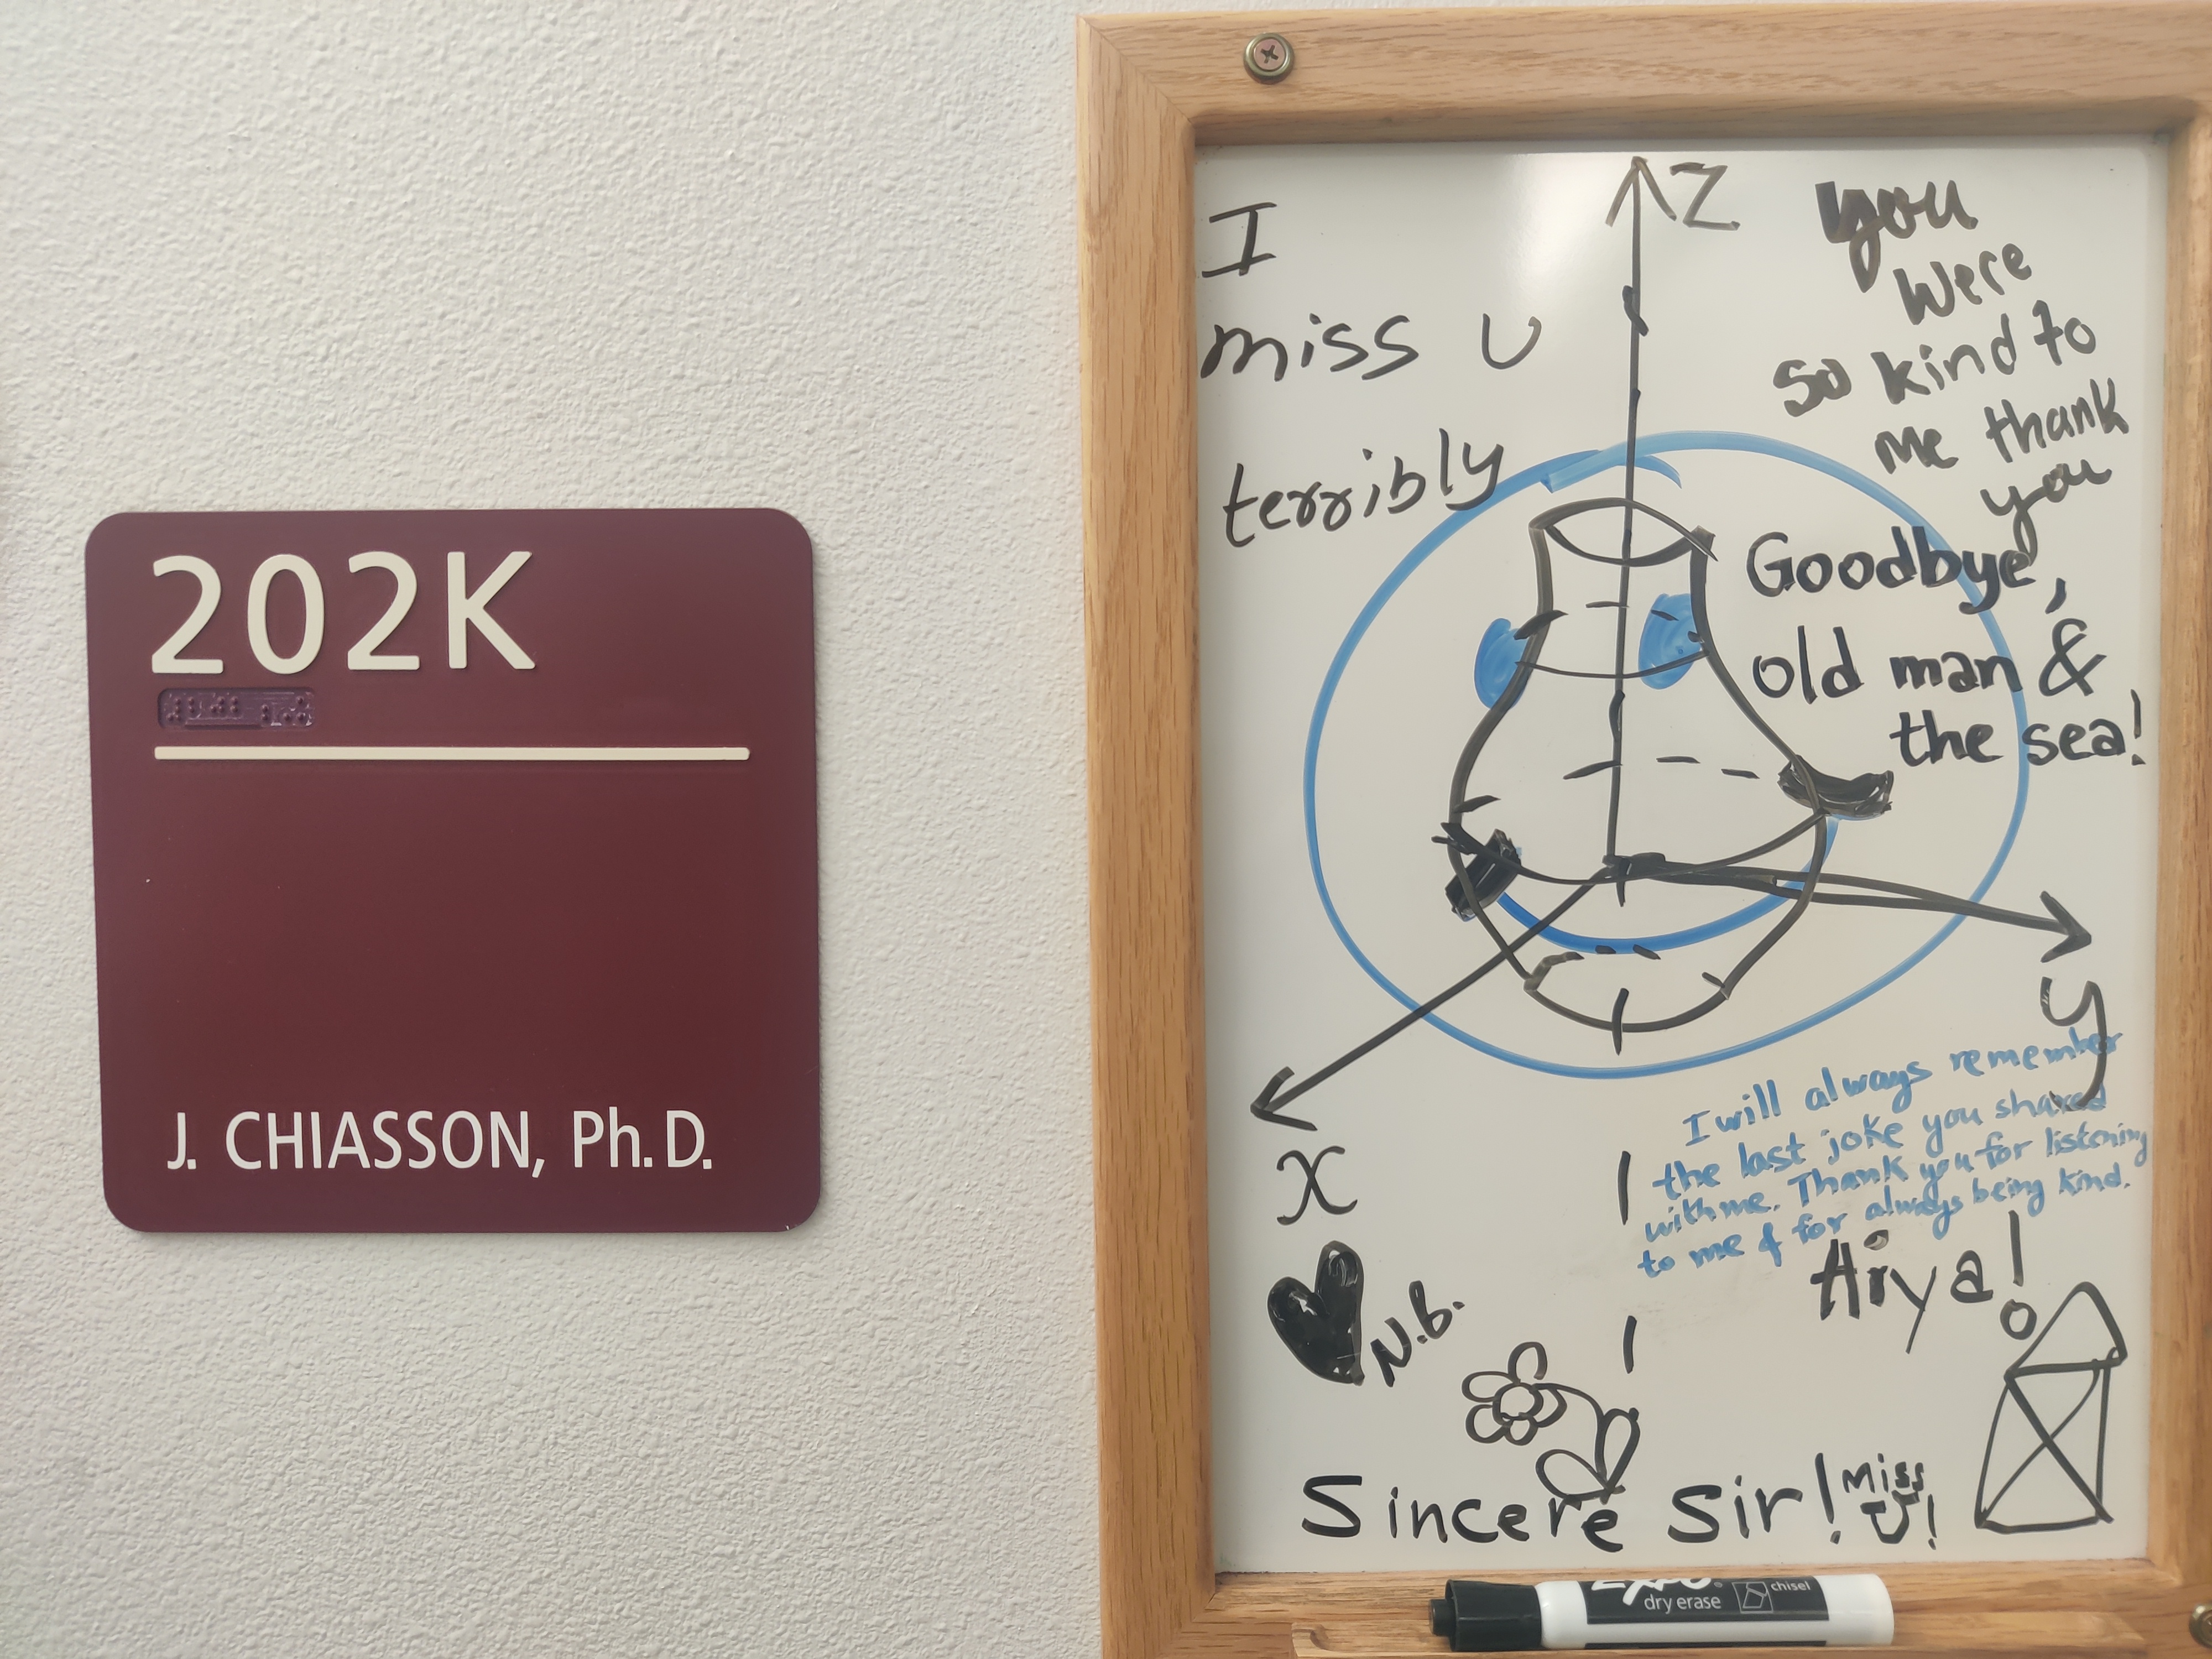 202K
J. CHIASSON, Ph.D.
Z
I
miss U
terribly
you
were
so kind to
me thank
you
Goodbye,
old man &
the sea!
y
x
I will always remember
the last joke you shared
with me. Thank you for listening
to me & for always being kind.
Aiya!
N.B.
Sincere Sir!
Miss
U!
Expo
dry erase
chisel